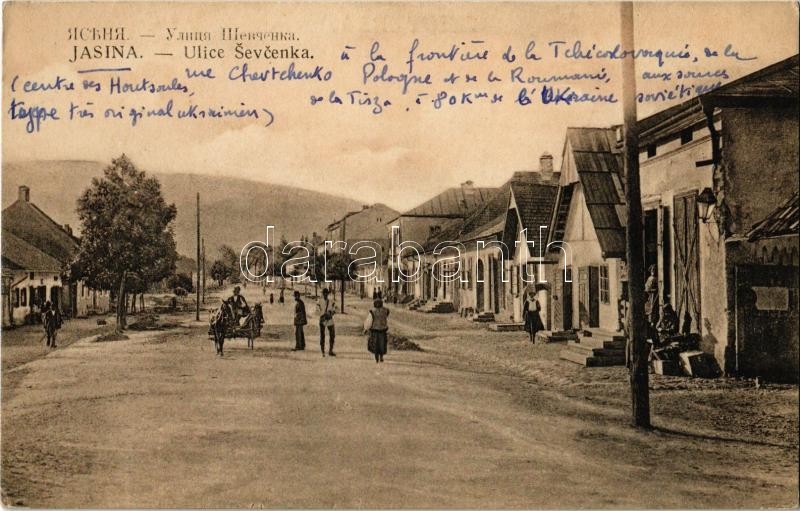 ЯСѢНЯ. — Улиця Шевченка.
JASINA. — Ulice Ševčenka.
à la frontière de la Tchécoslovaquie, de la
rue Chevtchenko Pologne et de la Roumanie, aux sources
(centre des Houtsoules, de la Tisza, à 80 Km de l'Ukraine soviétique
type très original ukrainien)
darabanth